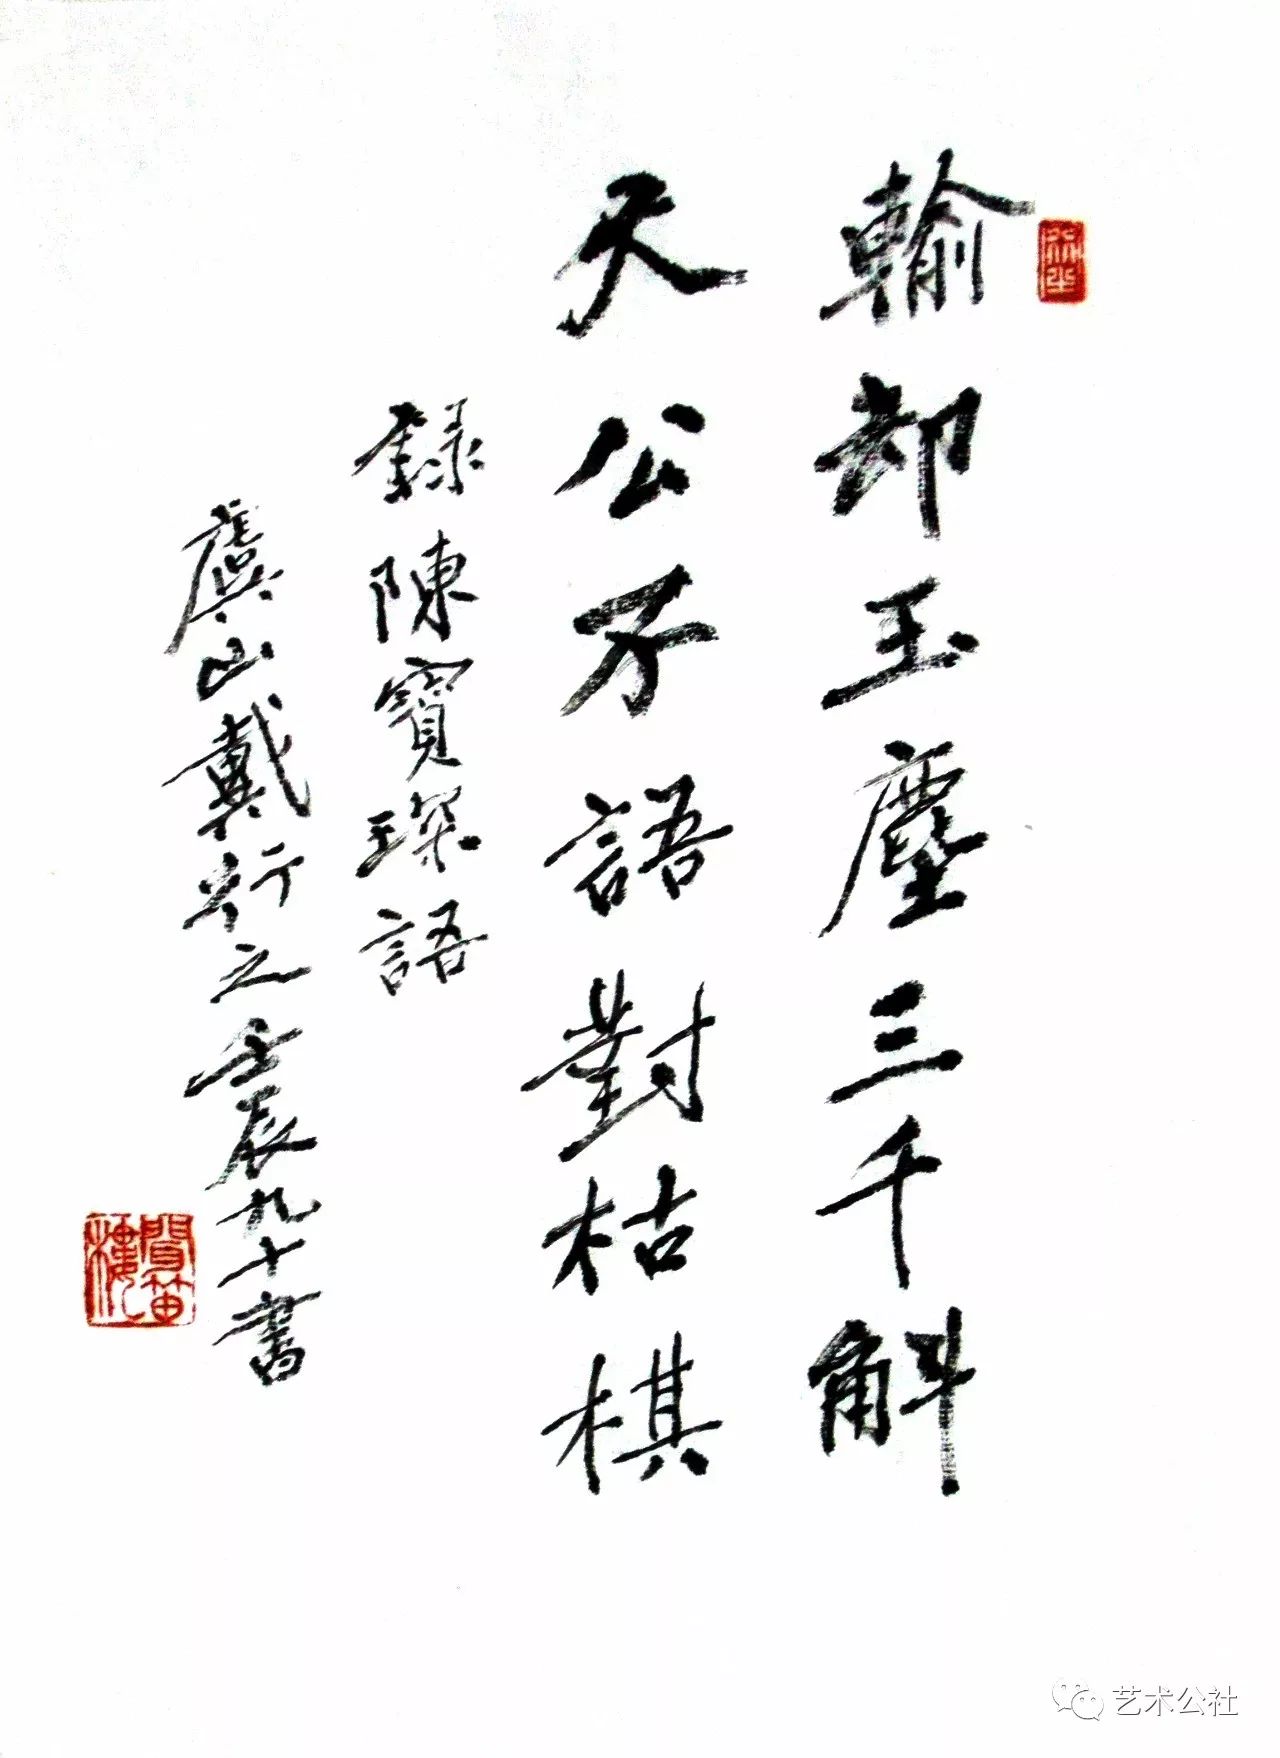 輸却玉塵三千斛
天公不語對枯棋
錄陳寶琛語
虞山戴行之壬辰九十書
聞笛樓
艺术公社